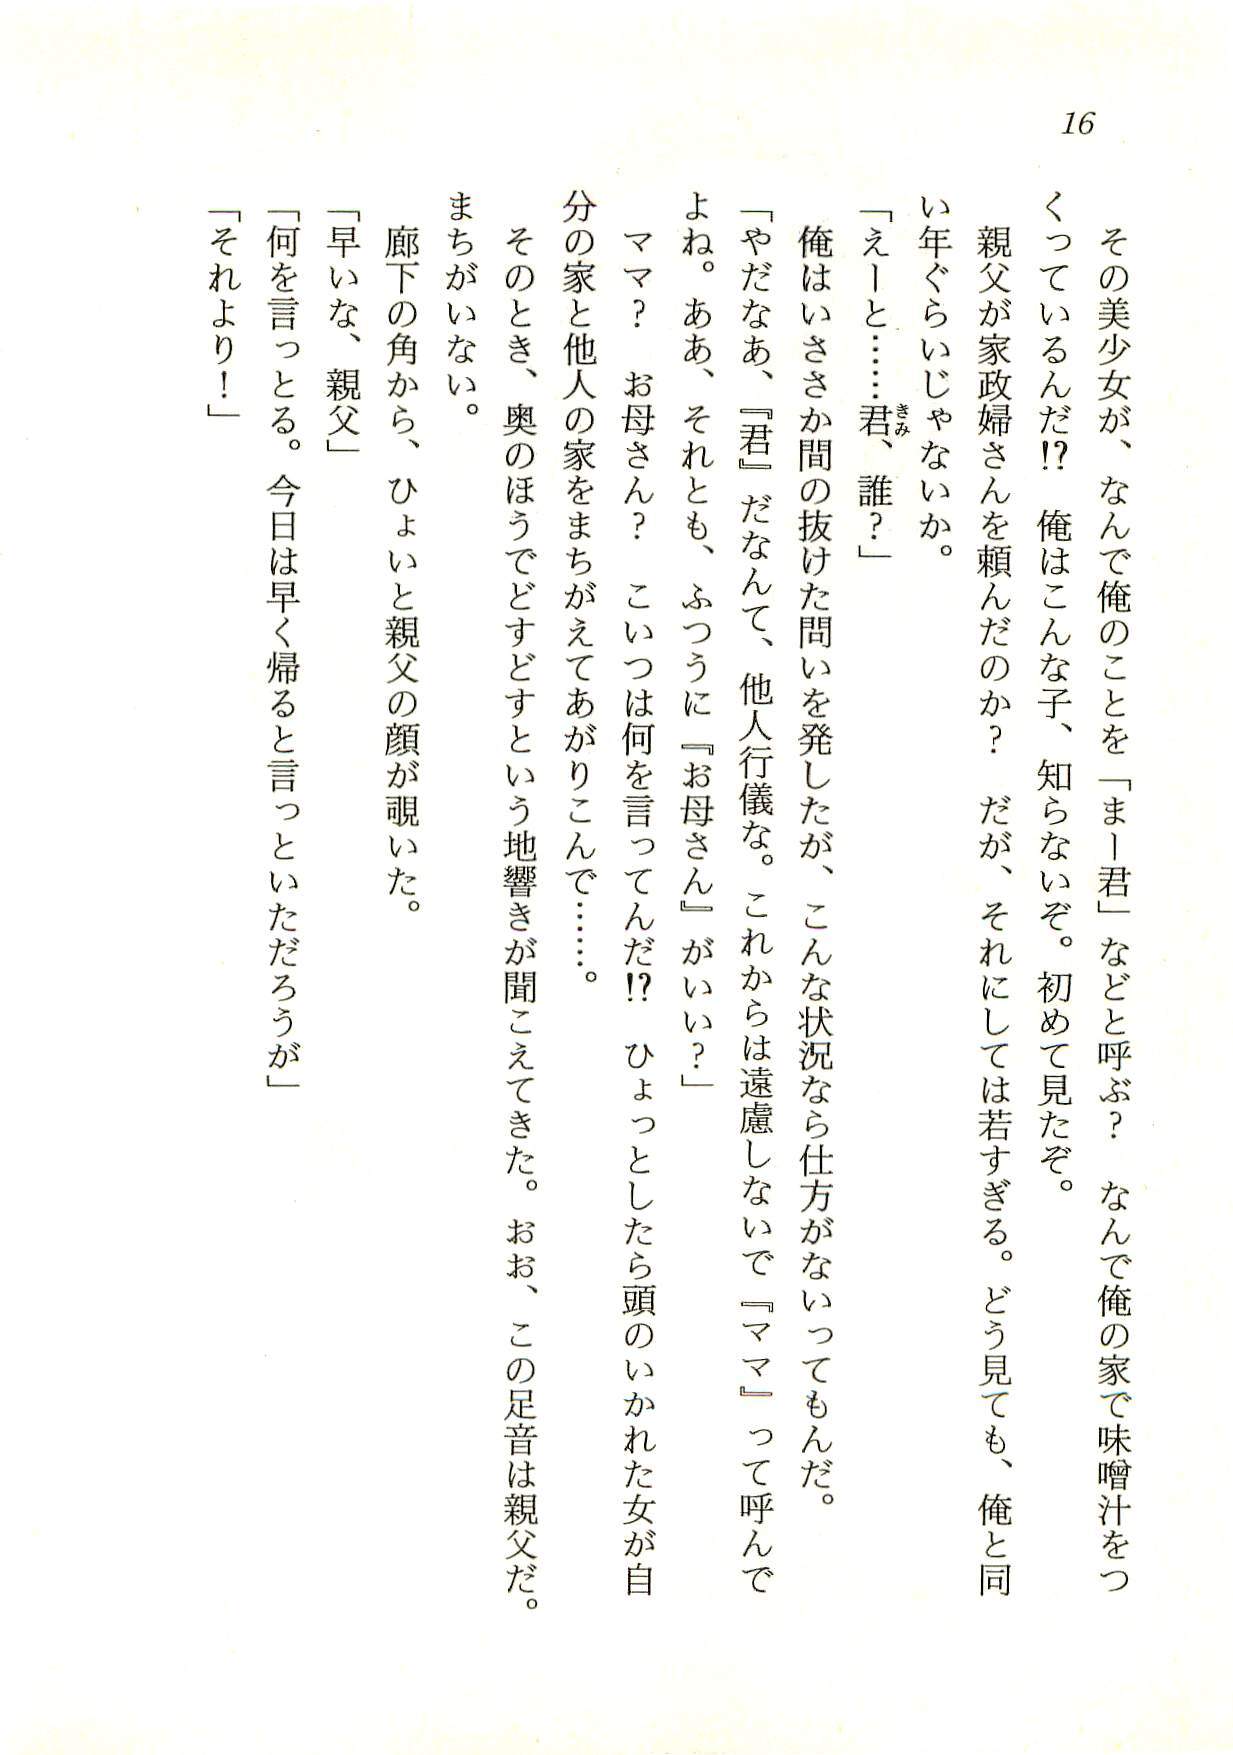 16
その美少女が、なんで俺のことを「まー君」などと呼ぶ？　なんで俺の家で味噌汁をつ
くっているんだ!?　俺はこんな子、知らないぞ。初めて見たぞ。
親父が家政婦さんを頼んだのか？　だが、それにしては若すぎる。どう見ても、俺と同
い年ぐらいじゃないか。
「えーと……君、誰？」
きみ
俺はいささか間の抜けた問いを発したが、こんな状況なら仕方がないってもんだ。
「やだなあ、『君』だなんて、他人行儀な。これからは遠慮しないで『ママ』って呼んで
よね。ああ、それとも、ふつうに『お母さん』がいい？」
ママ？　お母さん？　こいつは何を言ってんだ!?　ひょっとしたら頭のいかれた女が自
分の家と他人の家をまちがえてあがりこんで……。
そのとき、奥のほうでどすどすという地響きが聞こえてきた。おお、この足音は親父だ。
まちがいない。
廊下の角から、ひょいと親父の顔が覗いた。
「早いな、親父」
「何を言っとる。今日は早く帰ると言っといただろうが」
「それより！」